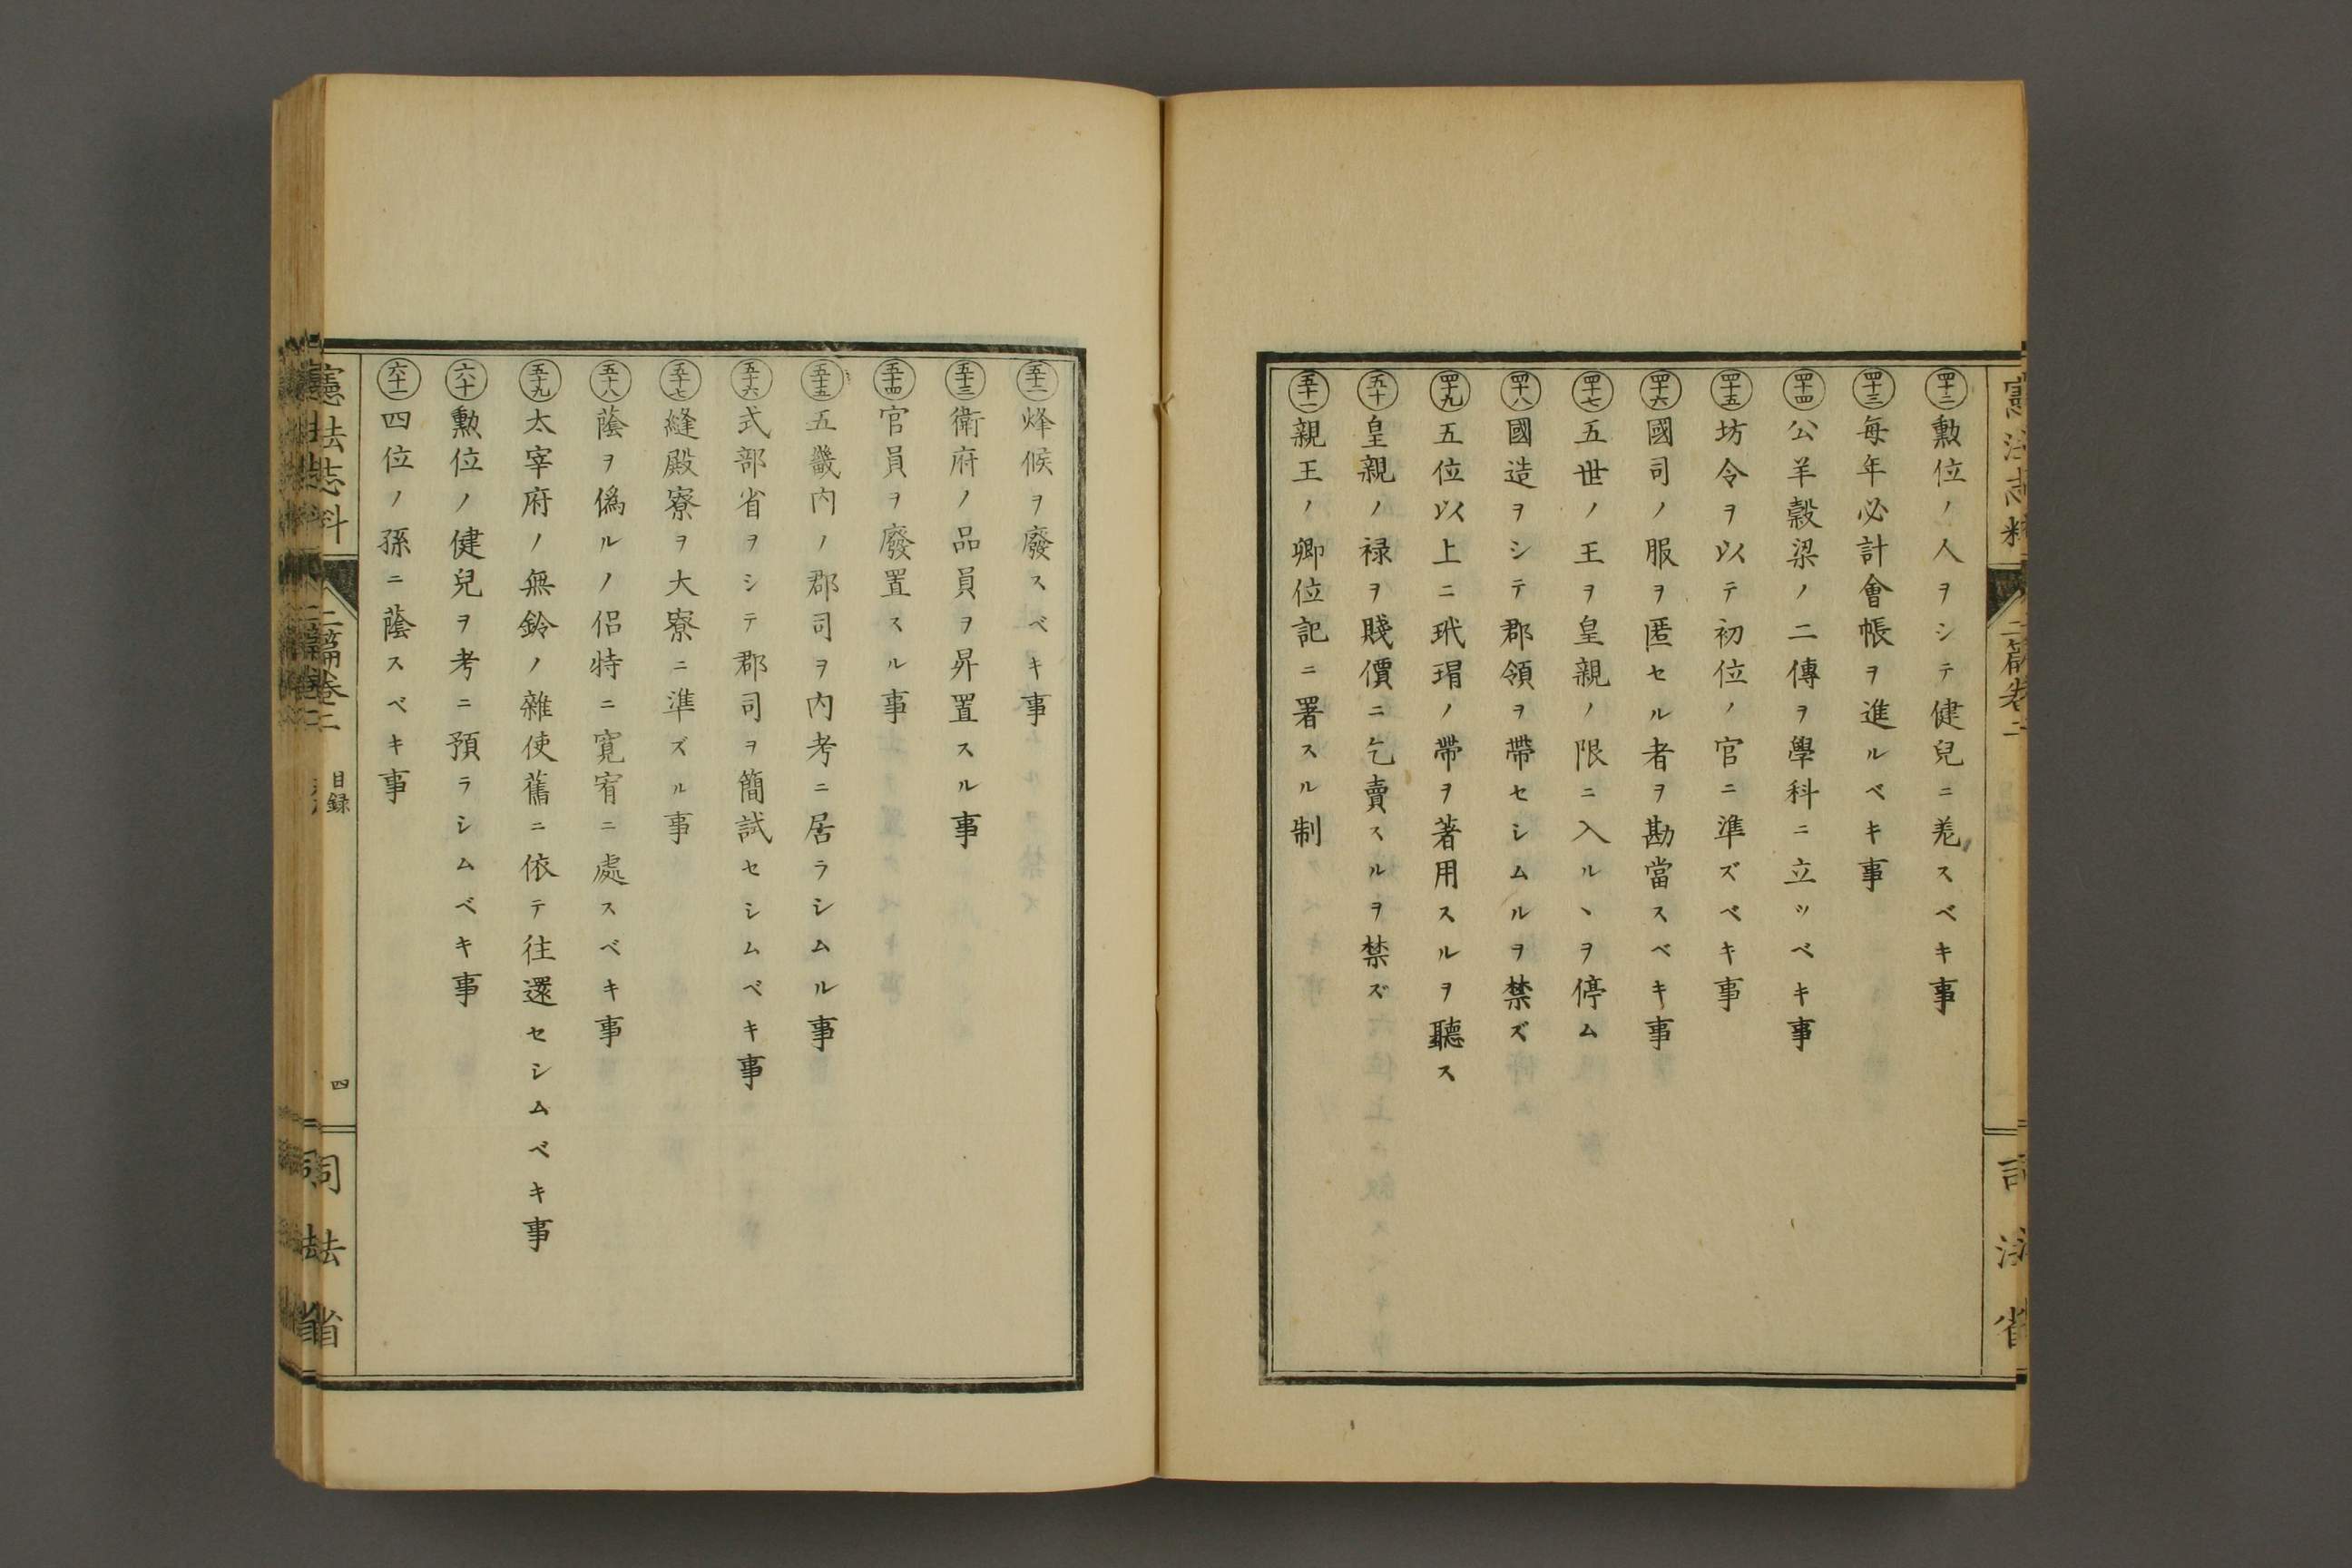 憲法志料
二篇卷二
司法省
四十二 勲位ノ人ヲシテ健兒ニ差スベキ事
四十三 每年必計會帳ヲ進ルベキ事
四十四 公羊穀梁ノ二傳ヲ學科ニ立ツベキ事
四十五 坊令ヲ以テ初位ノ官ニ準ズベキ事
四十六 國司ノ服ヲ匿セル者ヲ勘當スベキ事
四十七 五世ノ王ヲ皇親ノ限ニ入ルヽヲ停ム
四十八 國造ヲシテ郡領ヲ帶セシムルヲ禁ズ
四十九 五位以上ニ玳瑁ノ帶ヲ著用スルヲ聽ス
五十 皇親ノ禄ヲ賤價ニ乞賣スルヲ禁ズ
五十一 親王ノ卿位記ニ署スル制
五十二 烽候ヲ廢スベキ事
五十三 衛府ノ品員ヲ昇置スル事
五十四 官員ヲ廢置スル事
五十五 五畿内ノ郡司ヲ内考ニ居ラシムル事
五十六 式部省ヲシテ郡司ヲ簡試セシムベキ事
五十七 縫殿寮ヲ大寮ニ準ズル事
五十八 蔭ヲ僞ルノ侶特ニ寛宥ニ處スベキ事
五十九 太宰府ノ無鈴ノ雜使舊ニ依テ往還セシムベキ事
六十 勲位ノ健兒ヲ考ニ預ラシムベキ事
六十一 四位ノ孫ニ蔭スベキ事
憲法志料
二篇卷二
目録
四
司法省